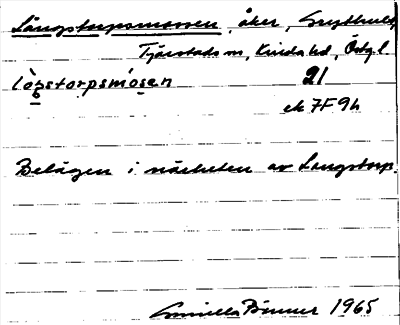 Långstorpsmossen, åker, Grythult
Tjärstads sn, Kinda hd, Östg l
lòŋstorpsmosen 21
ek 7F 9h
Belägen i närheten av Långstorp.
Gunilla Bonner 1965